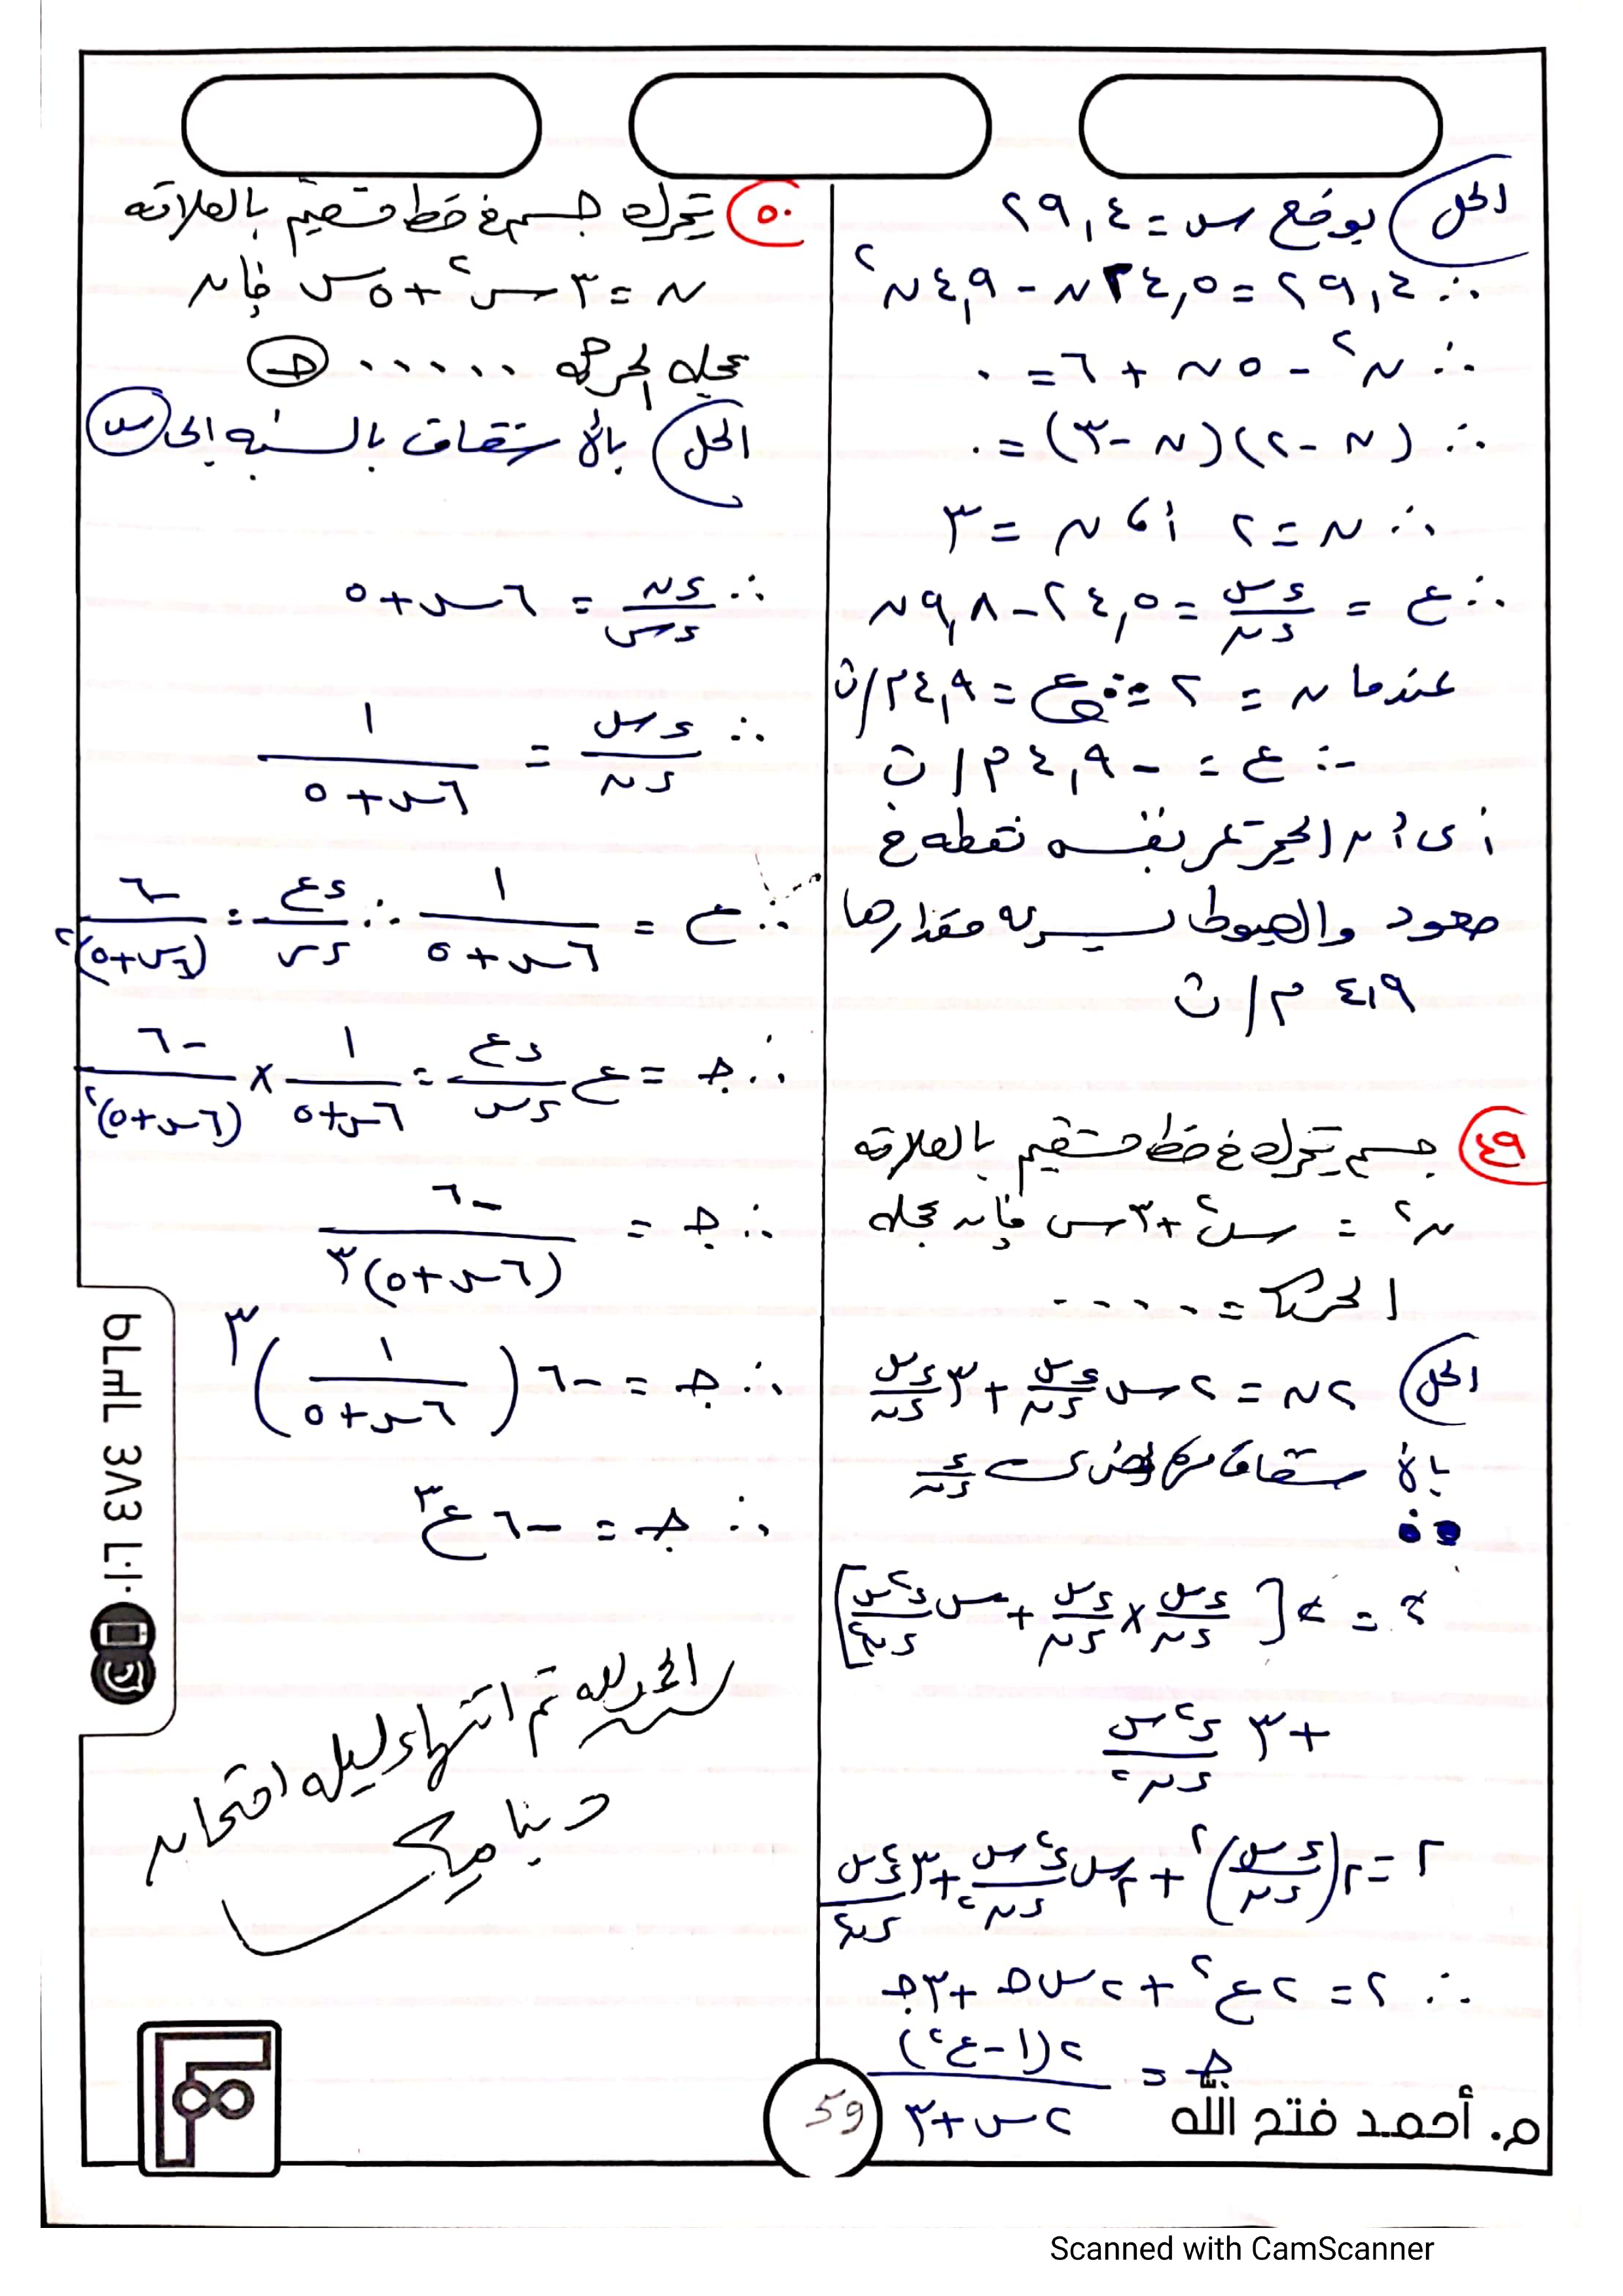 الحل بوضع س = ٢٩,٤
∴ ٢٩,٤ = ٢٤,٥ ن - ٤,٩ ن٢
∴ ن٢ - ٥ ن + ٦ = ٠
∴ (ن - ٢)(ن - ٣) = ٠
∴ ن = ٢ أ، ن = ٣
∴ ع = ءس/ءن = ٢٤,٥ - ٩,٨ ن
عندما ن = ٢ ع = ٤,٩ م/ث
∴ ع = - ٤,٩ م/ث
أى أن الحجر تمر بنفسه نقطه فى
صعود والهبوط بسرعه مقدارها
٤,٩ م/ث
٤٩ جسم يتحرك فى خط مستقيم بالعلاقه
ن٢ = س٢ + ٣س فإن عجله
الحركة = ....
الحل ٢ن = ٢س ءس/ءن + ٣ ءس/ءن
بالاشتقاق مره اخرى ء/ءن
٢ = ٢ [ءس/ءن × ءس/ءن + س ء٢س/ءن٢]
+ ٣ ء٢س/ءن٢
٢ = ٢(ءس/ءن)٢ + ٢س ء٢س/ءن٢ + ٣ ء٢س/ءن٢
∴ ٢ = ٢ع٢ + ٢س جـ + ٣جـ
جـ = ٢(١ - ع٢)/٢س + ٣
٥٠ يتحرك جسم فى خط مستقيم بالعلاقه
ن = ٣س٢ + ٥س فإن
عجله الحركه ...... جـ
الحل بالأشتقاق بالنسبه إلى س
∴ ءن/ءس = ٦س + ٥
∴ ءس/ءن = ١/٦س + ٥
∴ ع = ١/٦س + ٥ ∴ ءع/ءس = -٦/(٦س + ٥)٢
∴ جـ = ع ءع/ءس = ١/٦س + ٥ × -٦/(٦س + ٥)٢
∴ جـ = -٦/(٦س + ٥)٣
∴ جـ = -٦(١/٦س + ٥)٣
∴ جـ = -٦ ع٣
الحمد لله تم انتهاء ليله امتحان
ديناميكا
59
م. أحمد فتح الله
Scanned with CamScanner